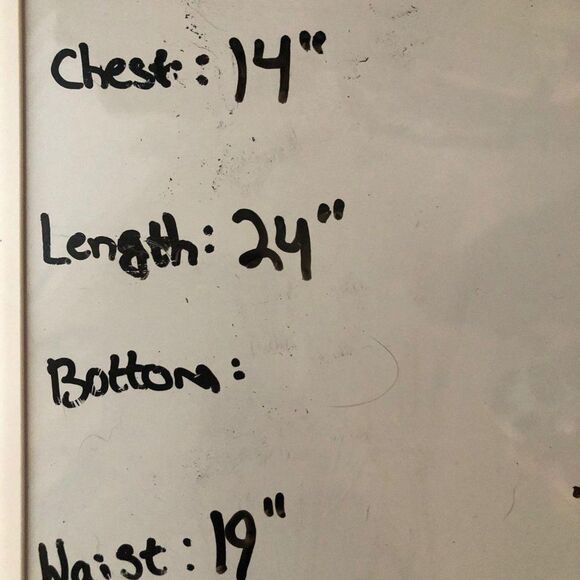 Chest: 14"
Length: 24"
Bottom:
Waist: 19"